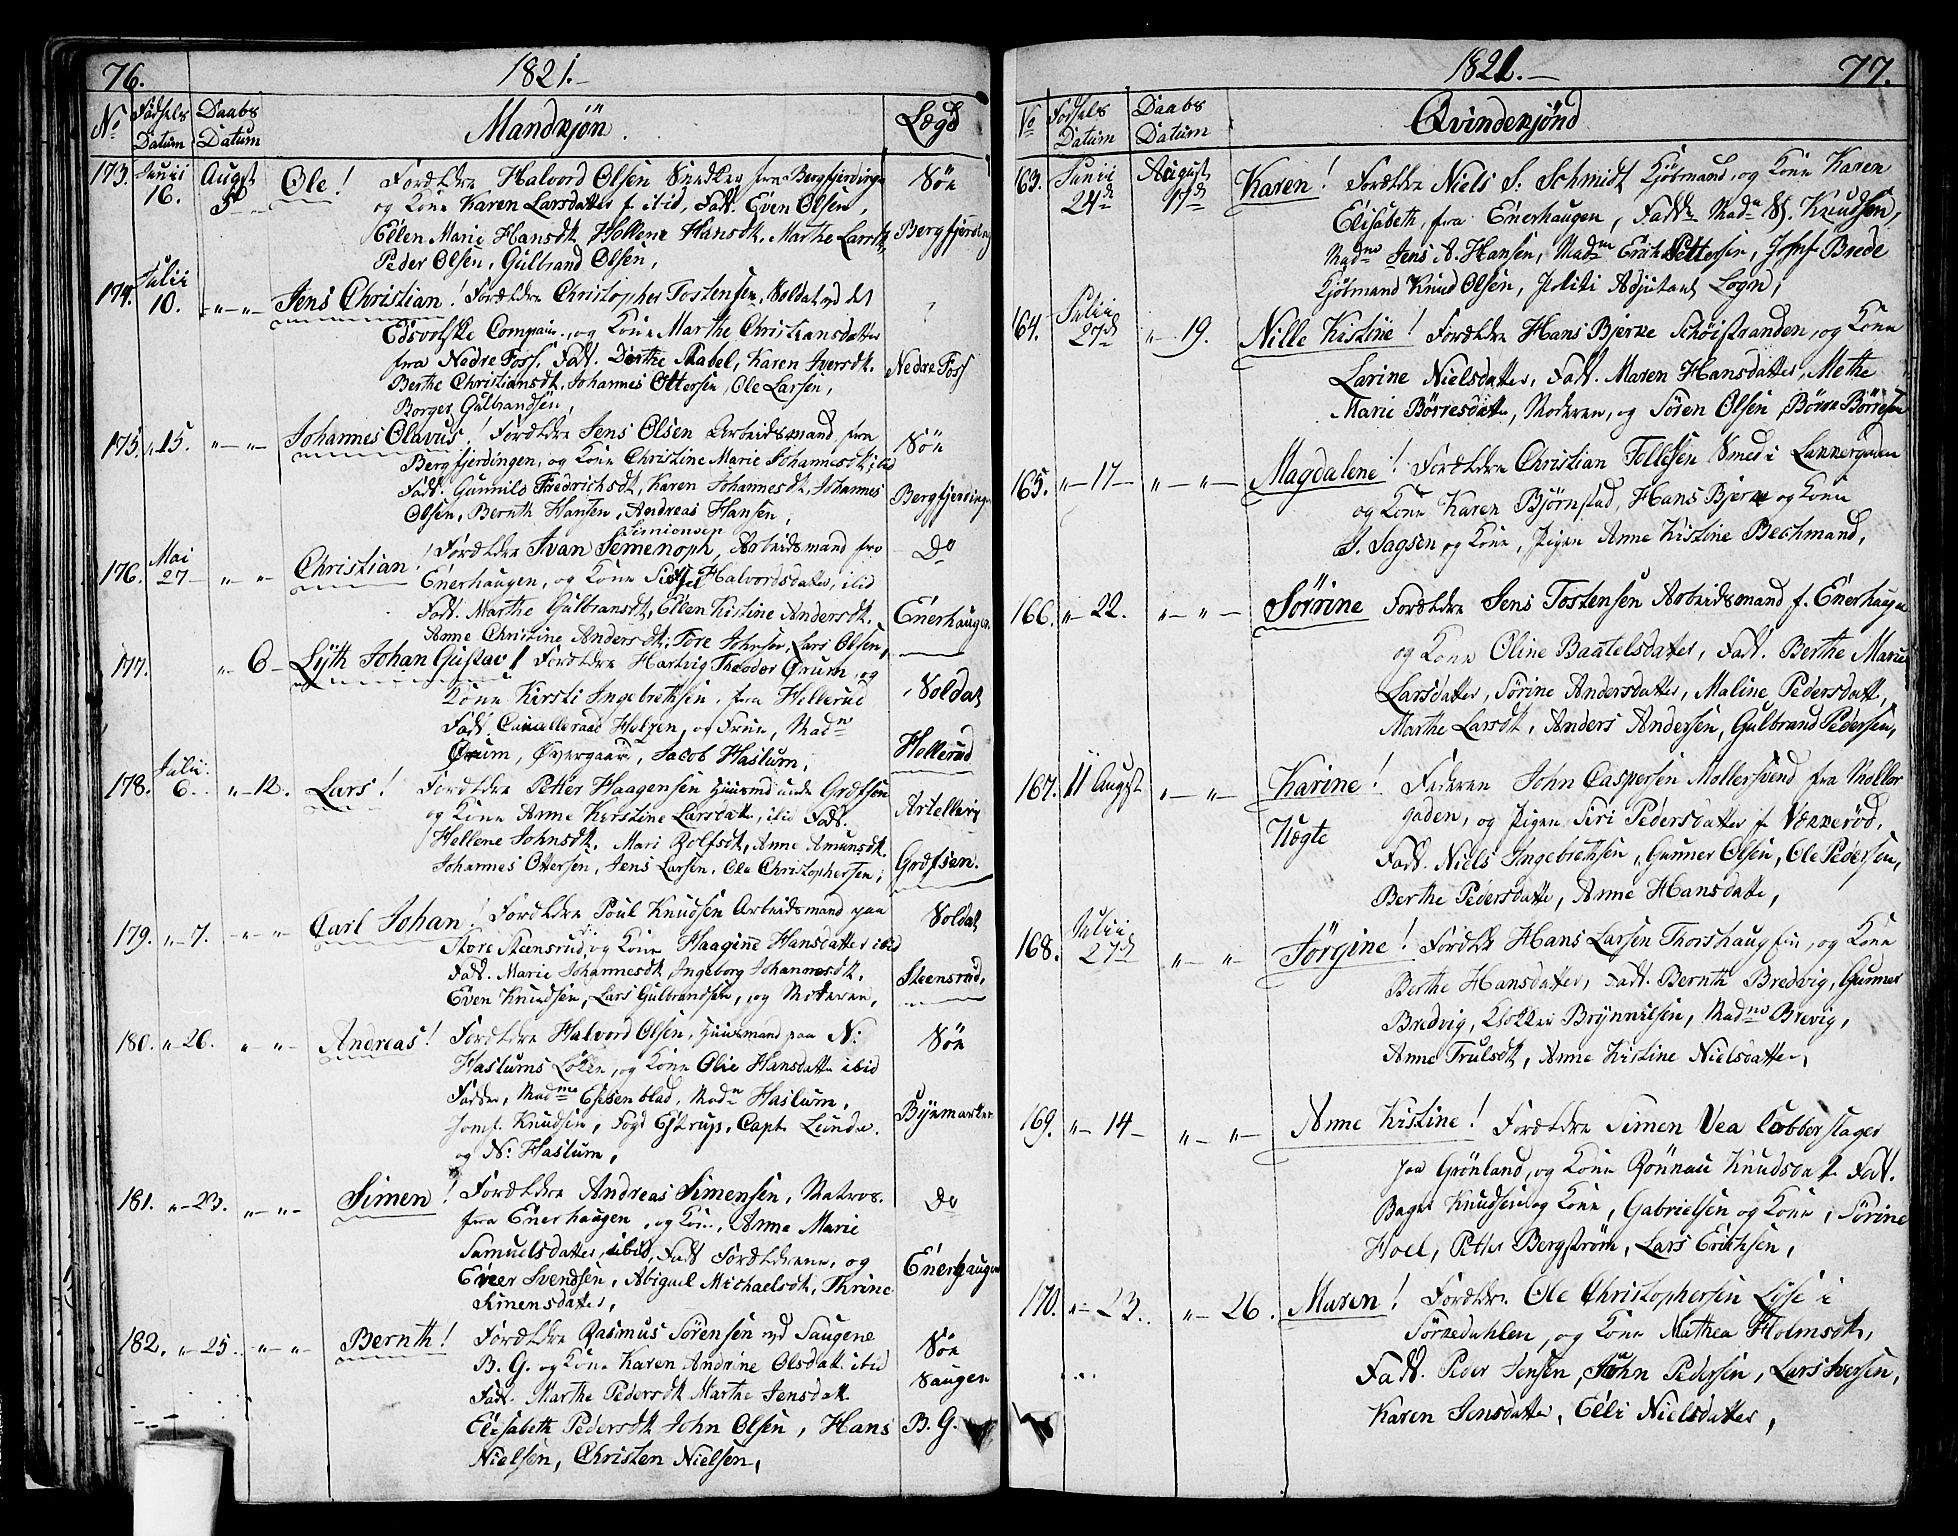 76. 1821.
No Fødsels Datum Daabs Datum Mandkjön. Lægd
173. Junii 16. Augst 5 Ole! Forældre Halvord Olsen Snedker fra Bergfjerdinge Sön
og Kone Karen Larsdatter f ibid, Fadd. Even Olsen,
Ellen Marie Hansdt, Hellene Hansdt, Marthe Larsdt, Bergfjerding
Peder Olsen, Gulbrand Olsen,
174. Julii 10. " " Jens Christian! Forældre Christopher Tostensen, Soldat ved det
Edsvolske Compani, og Kone Marthe Christiansdatter
fra Nedre Foss. Fadd. Dorthe Rabel, Karen Iversdt. Nedre Foss
Berthe Christiansdt, Johannes Ottersen, Ole Larsen,
Borger Gulbrandsen,
175. " 15. " " Johannes Olavus! Forældre Jens Olsen Arbeidsmand fra Sön
Bergfjerdingen, og Kone Christine Marie Johannesdt, ibid
Fadd. Gunnild Fredrichsdt, Karen Johannesdt, Johannes Bergfjerding
Olsen, Bernth Hansen, Andreas Hansen,
Simionsen
176. Mai 27 " " Christian! Forældre Ivan Semenoph, Arbeidsmand fra Do
Enerhaugen, og Kone Sidsel Halvordsdatter, ibid
Fadd. Marthe Gulbransdt, Ellen Kistine Andersdt. Enerhaugen
Anne Christine Andersdt, Tore Johnsen, Lars Olsen,
177. " 6 Lyth Johan Gustav! Forældre Hartvig Theodor Ørum, og
Kone Kirsti Ingebrethsen, fra Hellerud Soldat
Fadd. Holsen, og Frue, Madn
Ørum, Øvergaard, Jacob Haslum, Hellerud
178. Julii 6. " 12. Lars! Forældre Petter Haagensen Huusmd unde Grefsen
og Kone Anne Kirstine Larsdatt, ibid Fadd. Artelleri
Hellene Johnsdt, Mari Rolfsdt, Anne Amunsdt.
Johannes Ottersen, Jens Larsen, Ole Christophersen, Grefsen.
179. " 7. " " Carl Johan! Forældre Poul Knudsen Arbeidsmand paa Soldat
Store Steensrud, og Kone Haagine Hansdatter ibid
Fadd. Marie Johannesdt, Ingeborg Johannesdt. Steensrud,
Even Knudsen, Lars Gulbrandsen, og Moderen,
180. " 26. " " Andreas! Forældre Halvord Olsen, Huusmand paa N: Sön
Haslums Løkke, og Kone Olie Hansdatt ibid
Fadder, Madme Essenblad, Madn Haslum,
Jomf. Knudsen, Fogd Estrup, Capt. Lunde. Bÿemarken
og N: Haslum,
181. " 23. " " Simen! Forældre Andreas Simensen, Matros. Do
fra Enerhaugen, og Kone, Anne Marie
Samuelsdatter, ibid, Fadd Forældrene, og Enerhaugen
Eveer Svendsen, Abigael Michaelsdt, Thrine
Simensdatter,
182. " 25. " " Bernth! Forældre Rasmus Sörensen ved Saugene Sön
B. G. og Kone Karen Andrine Olsdatt ibid Saugen
Fadd. Marthe Pedersdt Marthe Jensdatt
Elisabeth Pedersdt John Olsen, Hans B. G.
Nielsen, Christen Nielsen,
1821. 77.
No Fodsels Datum Daabs Datum Qvindekjönd
163. Junii 24de August 17d Karen! Forældre Niels S: Schmidt Kjöbmand, og Kone Karen
Elisabeth, fra Enerhaugen, Fadd. Madn S. Knudsen,
Madme Jens A. Hansen, Madme Erik Pettersen, Josef Brede
Kjöbmand Knud Olsen, Politi Adjutant Logn,
164. Julii 27d " 19. Nille Kistine! Forældre Hans Bjerke Schöistranden, og Kone
Larine Nielsdatter, Fadd. Maren Hansdatter, Methe
Marie Börresdatt, Moderen, og Sören Olsen, Börre Börresen
165. " 17 " " Magdalene! Forældre Christian Tollefsen Smed i Lakkergaden
og Kone Karen Björnstad, Hans Bjerke og Kone
J. Jagsen og Kone, Pigen Anne Kistine Bechmand,
166. " 22. " " Sörine Forældre Jens Tostensen Arbeidsmand f. Enerhaugen
og Kone Oline Baatelsdatter, Fadd. Berthe Marie
Larsdatter, Sörine Andersdatter, Maline Pedersdatt,
Marthe Larsdt, Anders Andersen, Gulbrand Pedersen,
167. 11 Augst " " Karine! Faderen John Caspersen Möllersvend fra Möller
Uægte gaden, og Pigen Siri Pedersdatter f. Vækkeröd.
Fadd. Niels Ingebrethsen, Gunner Olsen, Ole Pedersen,
Berthe Pedersdatter, Anne Hansdatter,
168. Julii 27d " " Sörgine! Forældr Hans Larsen Thorshaug Ein, og Kone
Berthe Hansdatter, Fadd. Bernth Bredvig, Gunner
Bredvig, Klokker Brynnilsen, Madme Brevig,
Anne Trulsdt, Anne Kistine Nielsdatter,
169. " 14 " " Anne Kistine! Forældre Simen Vea Kobberslager
paa Grönland, og Kone Rönnau Knudsdatt Fad.
Bager Knudsen og Kone, Gabrielsen og Kone, Sörine
Hoel, Petter Bergström, Lars Erichsen,
170. " 23. " 26. Maren! Forældre Ole Christophersen Lyse i
Sörkedahlen, og Kone Mathea Holmsdt,
Fadd. Peder Jensen, John Pedersen, Lars Iversen,
Karen Jensdatter, Elli Nielsdatter,